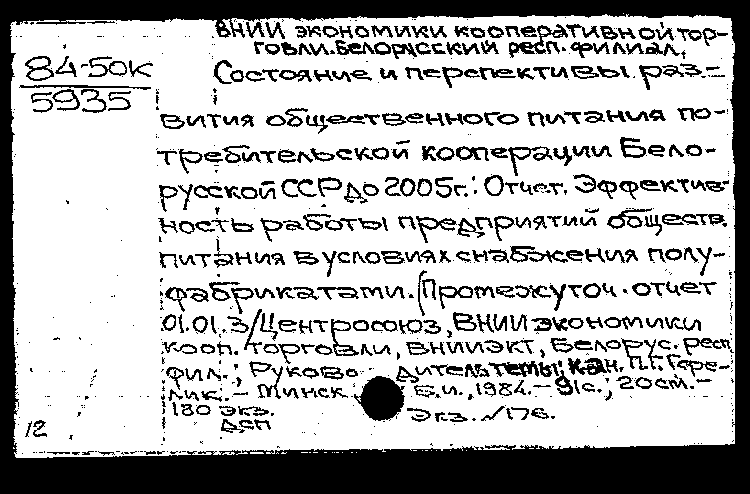 ВНИИ экономики кооперативной тор-
говли. Белорусский респ. филиал.
84-50к
5935
Состояние и перспективы раз-
вития общественного питания по-
требительской кооперации Бело-
русской ССР до 2005г.: Отчет. Эффектив-
ность работы предприятий обществ.
питания в условиях снабжения полу-
фабрикатами. (Промежуточ. отчет
01.01.3/Центросоюз, ВНИИ экономики
кооп. торговли, ВНИИЭКТ, Белорус. респ
фил.; Руково дитель темы, кан. П.Г. Гере-
лик. - Минск Б.и., 1984. - 91с.; 20см. -
180 экз. Экз. √176.
ДСП
12